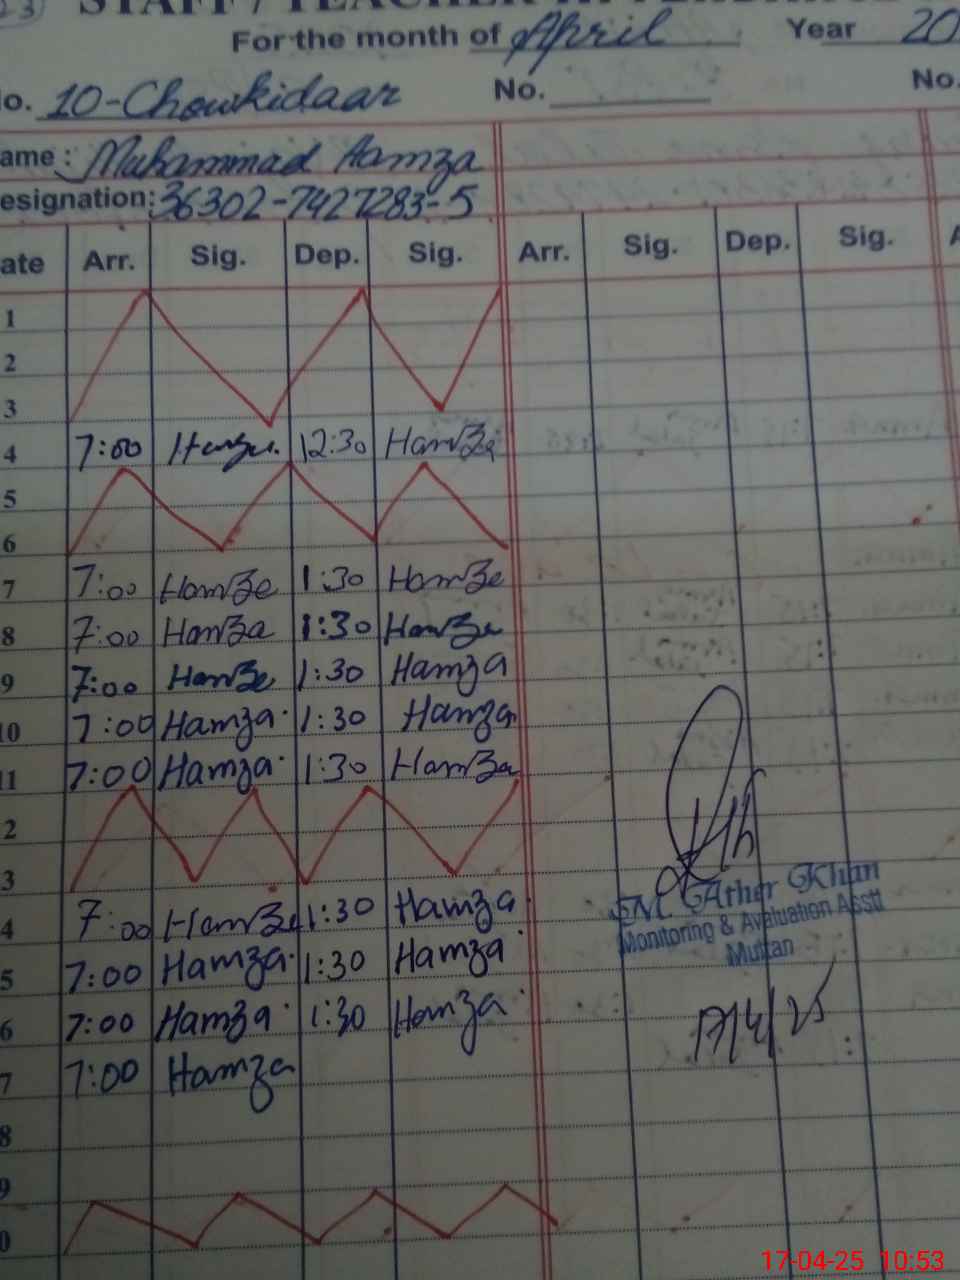 STAFF / TEACHER ATTENDANCE
For the month of April Year 20
No. 10-Chowkidaar No. No.
ame : Muhammad Aamza
esignation: 36302-7427283-5
ate Arr. Sig. Dep. Sig. Arr. Sig. Dep. Sig. A
1
2
3
4 7:00 Hamza. 12:30 Hamza
5
6
7 7:00 Hamza 1:30 Hamza
8 7:00 Hamza 1:30 Hamza
9 7:00 Hamza 1:30 Hamza
10 7:00 Hamza 1:30 Hamza
11 7:00 Hamza 1:30 Hamza
2
3
4 7:00 Hamza 1:30 Hamza
5 7:00 Hamza 1:30 Hamza
6 7:00 Hamza 1:30 Hamza
7 7:00 Hamza
8
9
0
M. Ather Khan
Monitoring & Avaluation Asstt
Multan
17/4/25
17-04-25 10:53